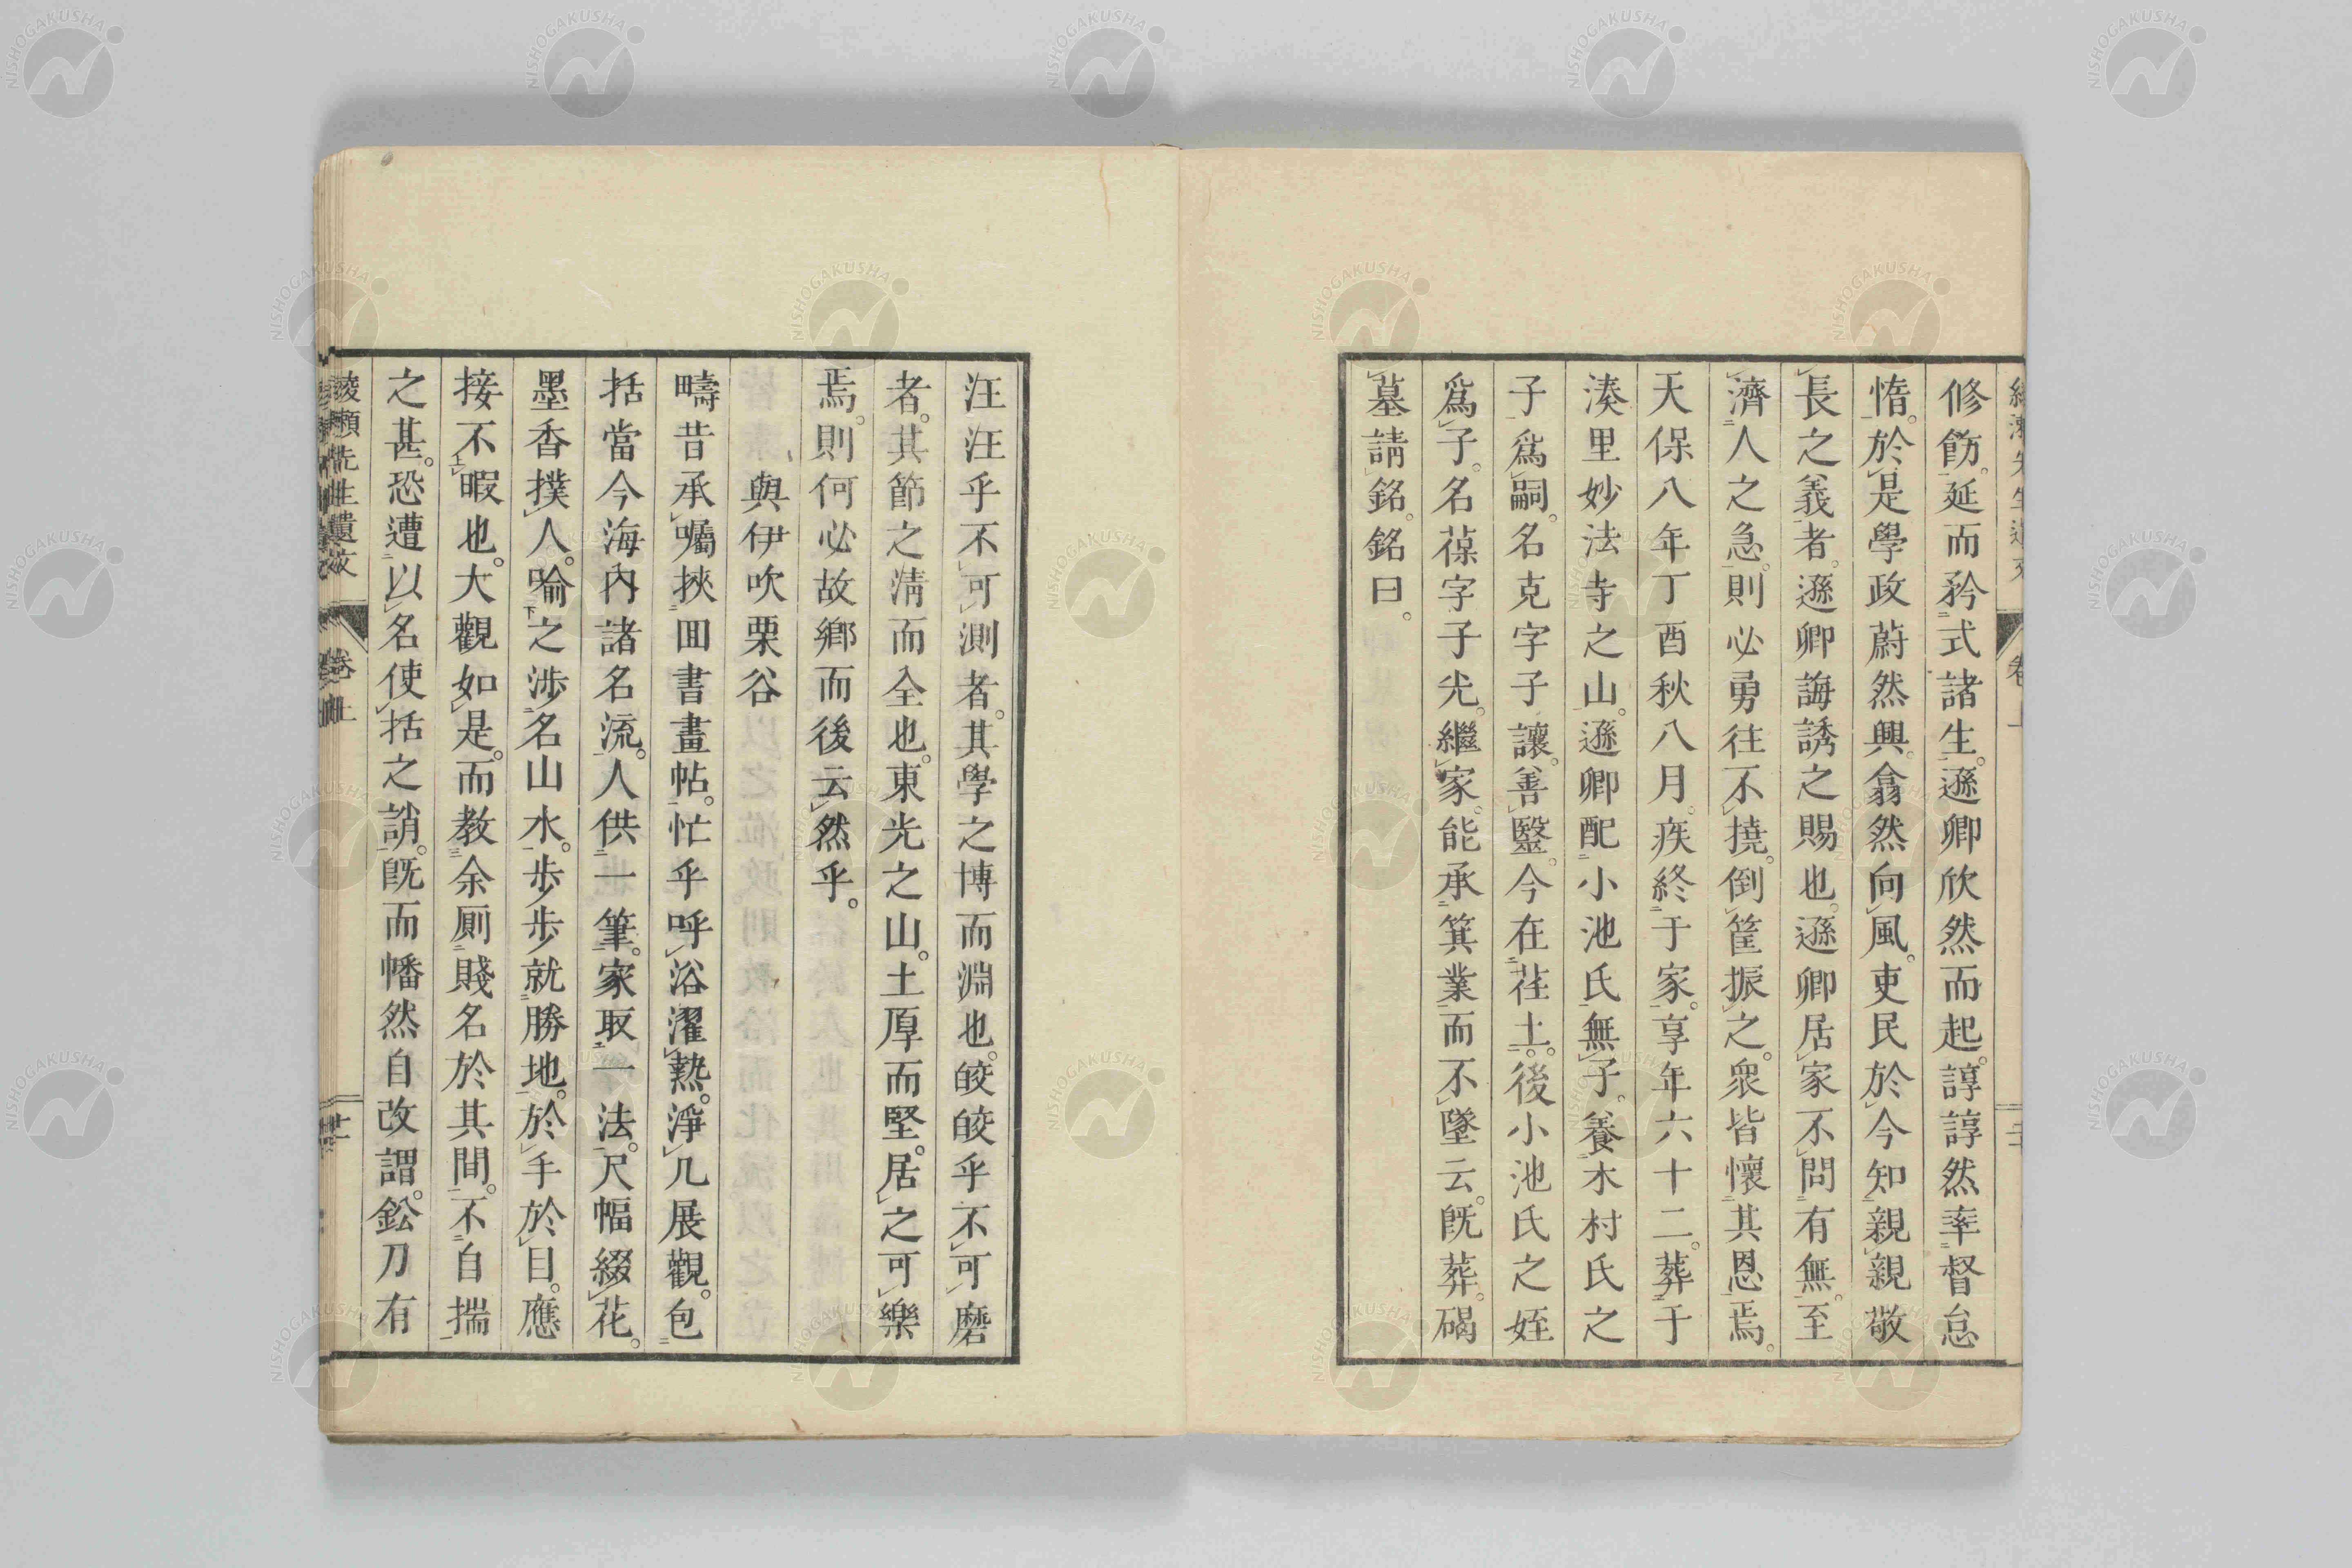 修飭。延而矜式諸生。遜卿欣然而起。諄諄然率督怠
惰。於是學政蔚然興。翕然向風。吏民於今知親親敬
長之義者。遜卿誨誘之賜也。遜卿居家不問有無。至
濟人之急。則必勇往不撓。倒筐振之。衆皆懷其恩焉。
天保八年丁酉秋八月。疾終于家。享年六十二。葬于
湊里妙法寺之山。遜卿配小池氏無子。養木村氏之
子爲嗣。名克字子讓。善毉。今在荏土。後小池氏之姪
爲子。名葆字子光。繼家。能承箕業而不墜云。旣葬。碣
墓請銘。銘曰。
汪汪乎不可測者。其學之博而淵也。皎皎乎不可磨
者。其節之淸而全也。東光之山。土厚而堅。居之可樂
焉。則何必故鄉而後云然乎。
與伊吹栗谷
疇昔承囑挾囬書畫帖。忙乎呼浴濯熱。淨几展觀。包
括當今海內諸名流。人供一筆。家取一法。尺幅綴花。
墨香撲人。喻之涉名山水。步步就勝地。於手於目。應
接不暇也。大觀如是。而敎余厠賤名於其間。不自揣
之甚。恐遭以名使括之誚。旣而幡然自改謂。鈆刀有
綾瀨先生遺文 卷上 廿一
NISHOGAKUSHA